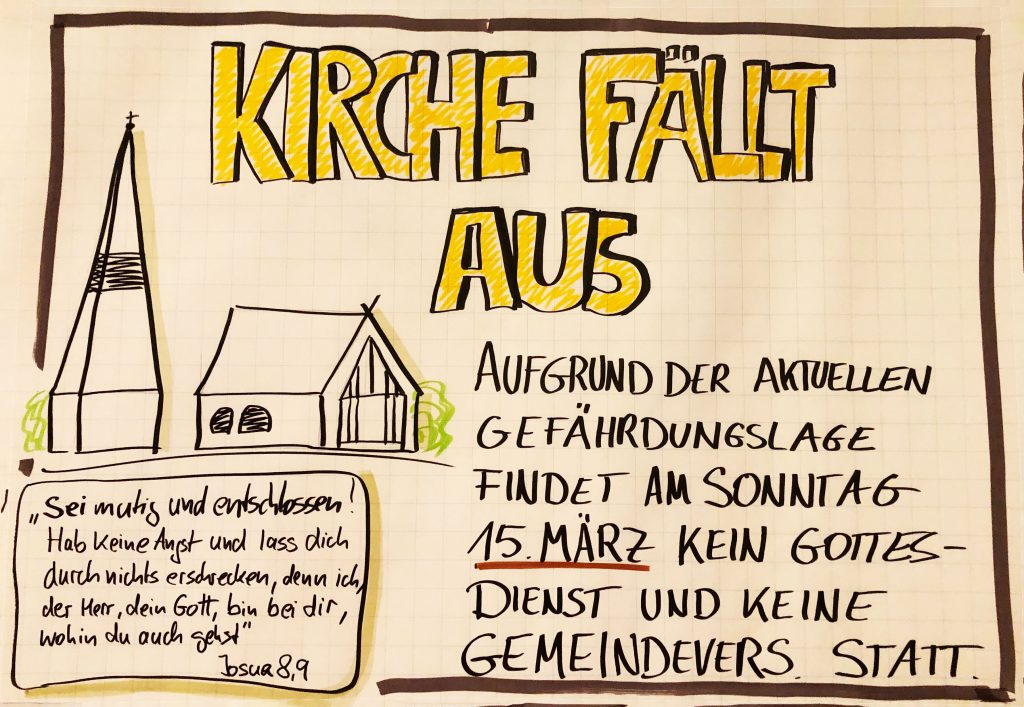 KIRCHE FÄLLT
AUS
AUFGRUND DER AKTUELLEN
GEFÄHRDUNGSLAGE
FINDET AM SONNTAG
15. MÄRZ KEIN GOTTES-
DIENST UND KEINE
GEMEINDEVERS. STATT.
„Sei mutig und entschlossen!
Hab keine Angst und lass dich
durch nichts erschrecken, denn ich,
der Herr, dein Gott, bin bei dir,
wohin du auch gehst"
Josua 8,9